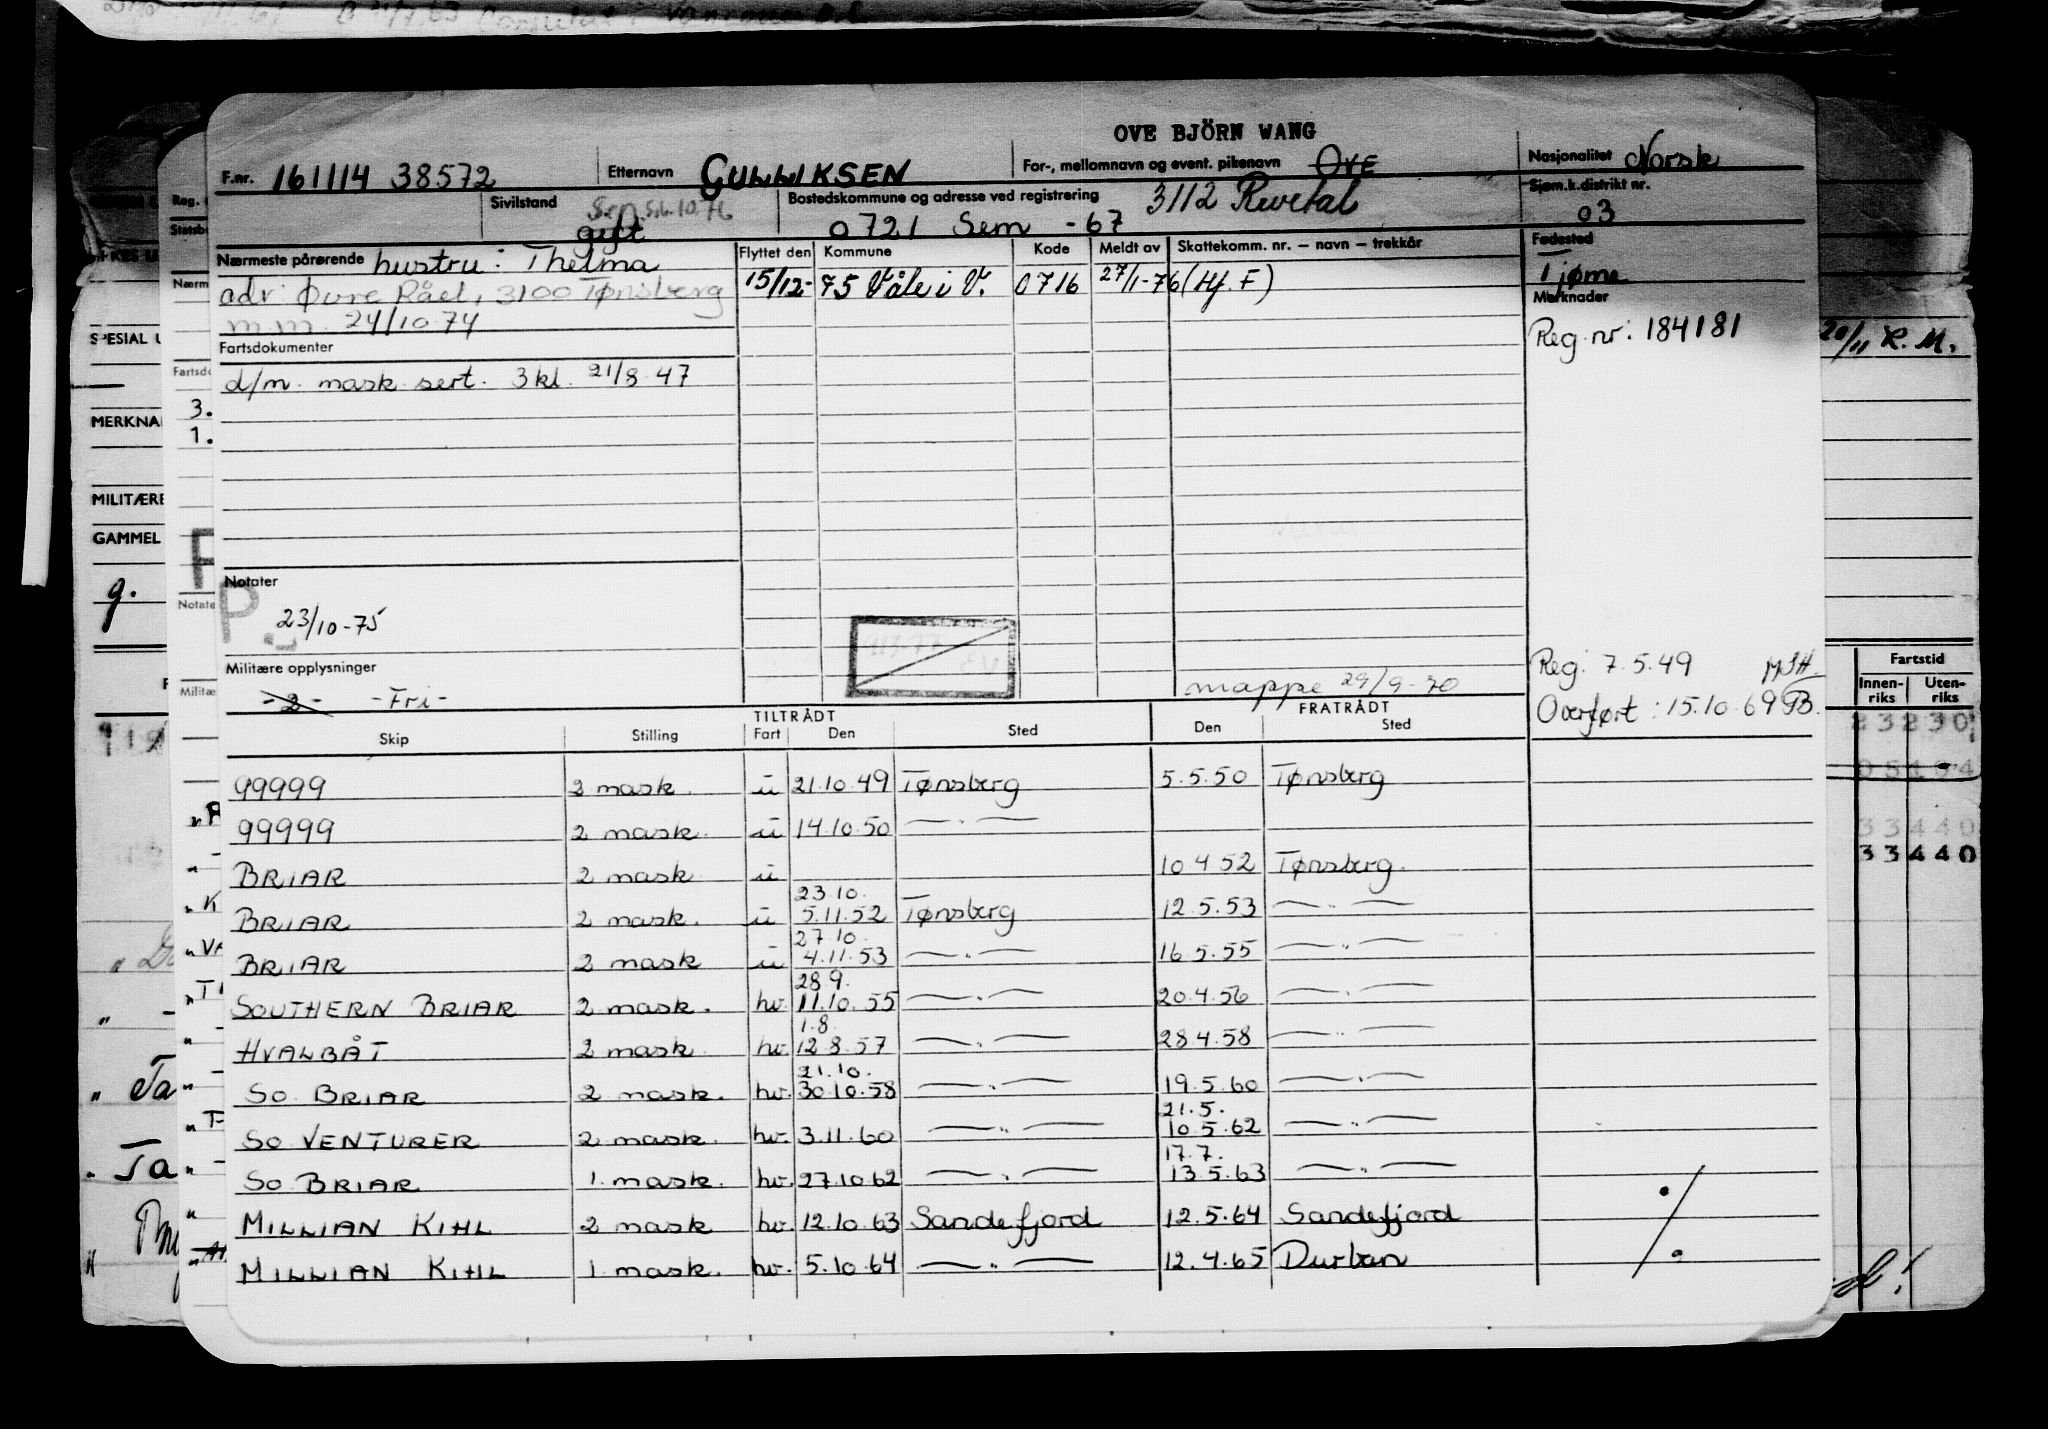 OVE BJÖRN WANG
F.nr. 161114 38572 Etternavn GULLIKSEN For-, mellomnavn og event. pikenavn OVE Nasjonalitet Norsk
Sivilstand gift Bostedskommune og adresse ved registrering 0721 Sem -67 3112 Revetal Sjøm.k.distrikt nr. 03
Nærmeste pårørende hustru: Thelma Flyttet den Kommune Kode Meldt av Skattekomm. nr. – navn – trekkår Fødested Tjøme
adr: Øvre Råel, 3100 Tønsberg 15/12- 75 Våle i V. 0716 27/1-76 (Hf. F) Merknader
m.m. 24/10-74
Reg. nr: 184181
20/11 K. M.
Fartsdokumenter
d/m. mask. sert. 3 kl. 21/8-47
SPESIAL
3.
MERKNA
1.
MILITÆRE
GAMMEL
g.
Notater
P.
23/10-75
Militære opplysninger
-2- -Fri-
mappe 29/9-70
Reg: 7.5.49
Overført: 15.10.69
Fartstid
Innen-riks Uten-riks
33440
33440
TILTRÅDT FRATRÅDT
Skip Stilling Fart Den Sted Den Sted
99999 2 mask. u 21.10.49 Tønsberg 5.5.50 Tønsberg
99999 2 mask. u 14.10.50 — " —
BRIAR 2 mask u 10.4.52 Tønsberg.
BRIAR 2 mask. u 23.10. 5.11.52 Tønsberg 12.5.53 — " —
BRIAR 2 mask u 27.10. 4.11.53 — " — 16.5.55 — " —
SOUTHERN BRIAR 2 mask. hv. 28.9. 11.10.55 — " — 20.4.56 — " —
HVALBÅT 2 mask. hv. 1.8. 12.8.57 — " — 28.4.58 — " —
SO. BRIAR 2 mask. hv. 21.10. 30.10.58 — " — 19.5.60 — " —
SO VENTURER 2 mask. hv. 3.11.60 — " — 21.5. 10.5.62 — " —
SO BRIAR 1. mask. hv. 27.10.62 — " — 17.7. 13.5.63 — " —
MILLIAN KIHL 2 mask hv. 12.10.63 Sandefjord 12.5.64 Sandefjord
MILLIAN KIHL 1. mask. hv. 5.10.64 — " — 12.4.65 Durban